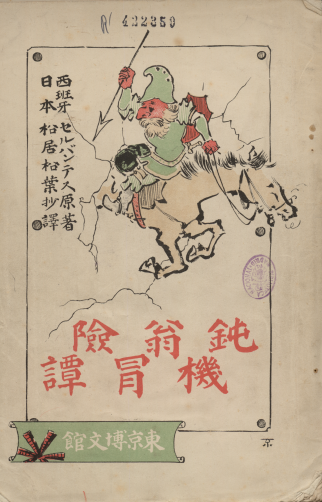 422359
西班牙 セルバンテス原著
日本 松居松葉抄譯
鈍機翁冒險譚
東京博文館